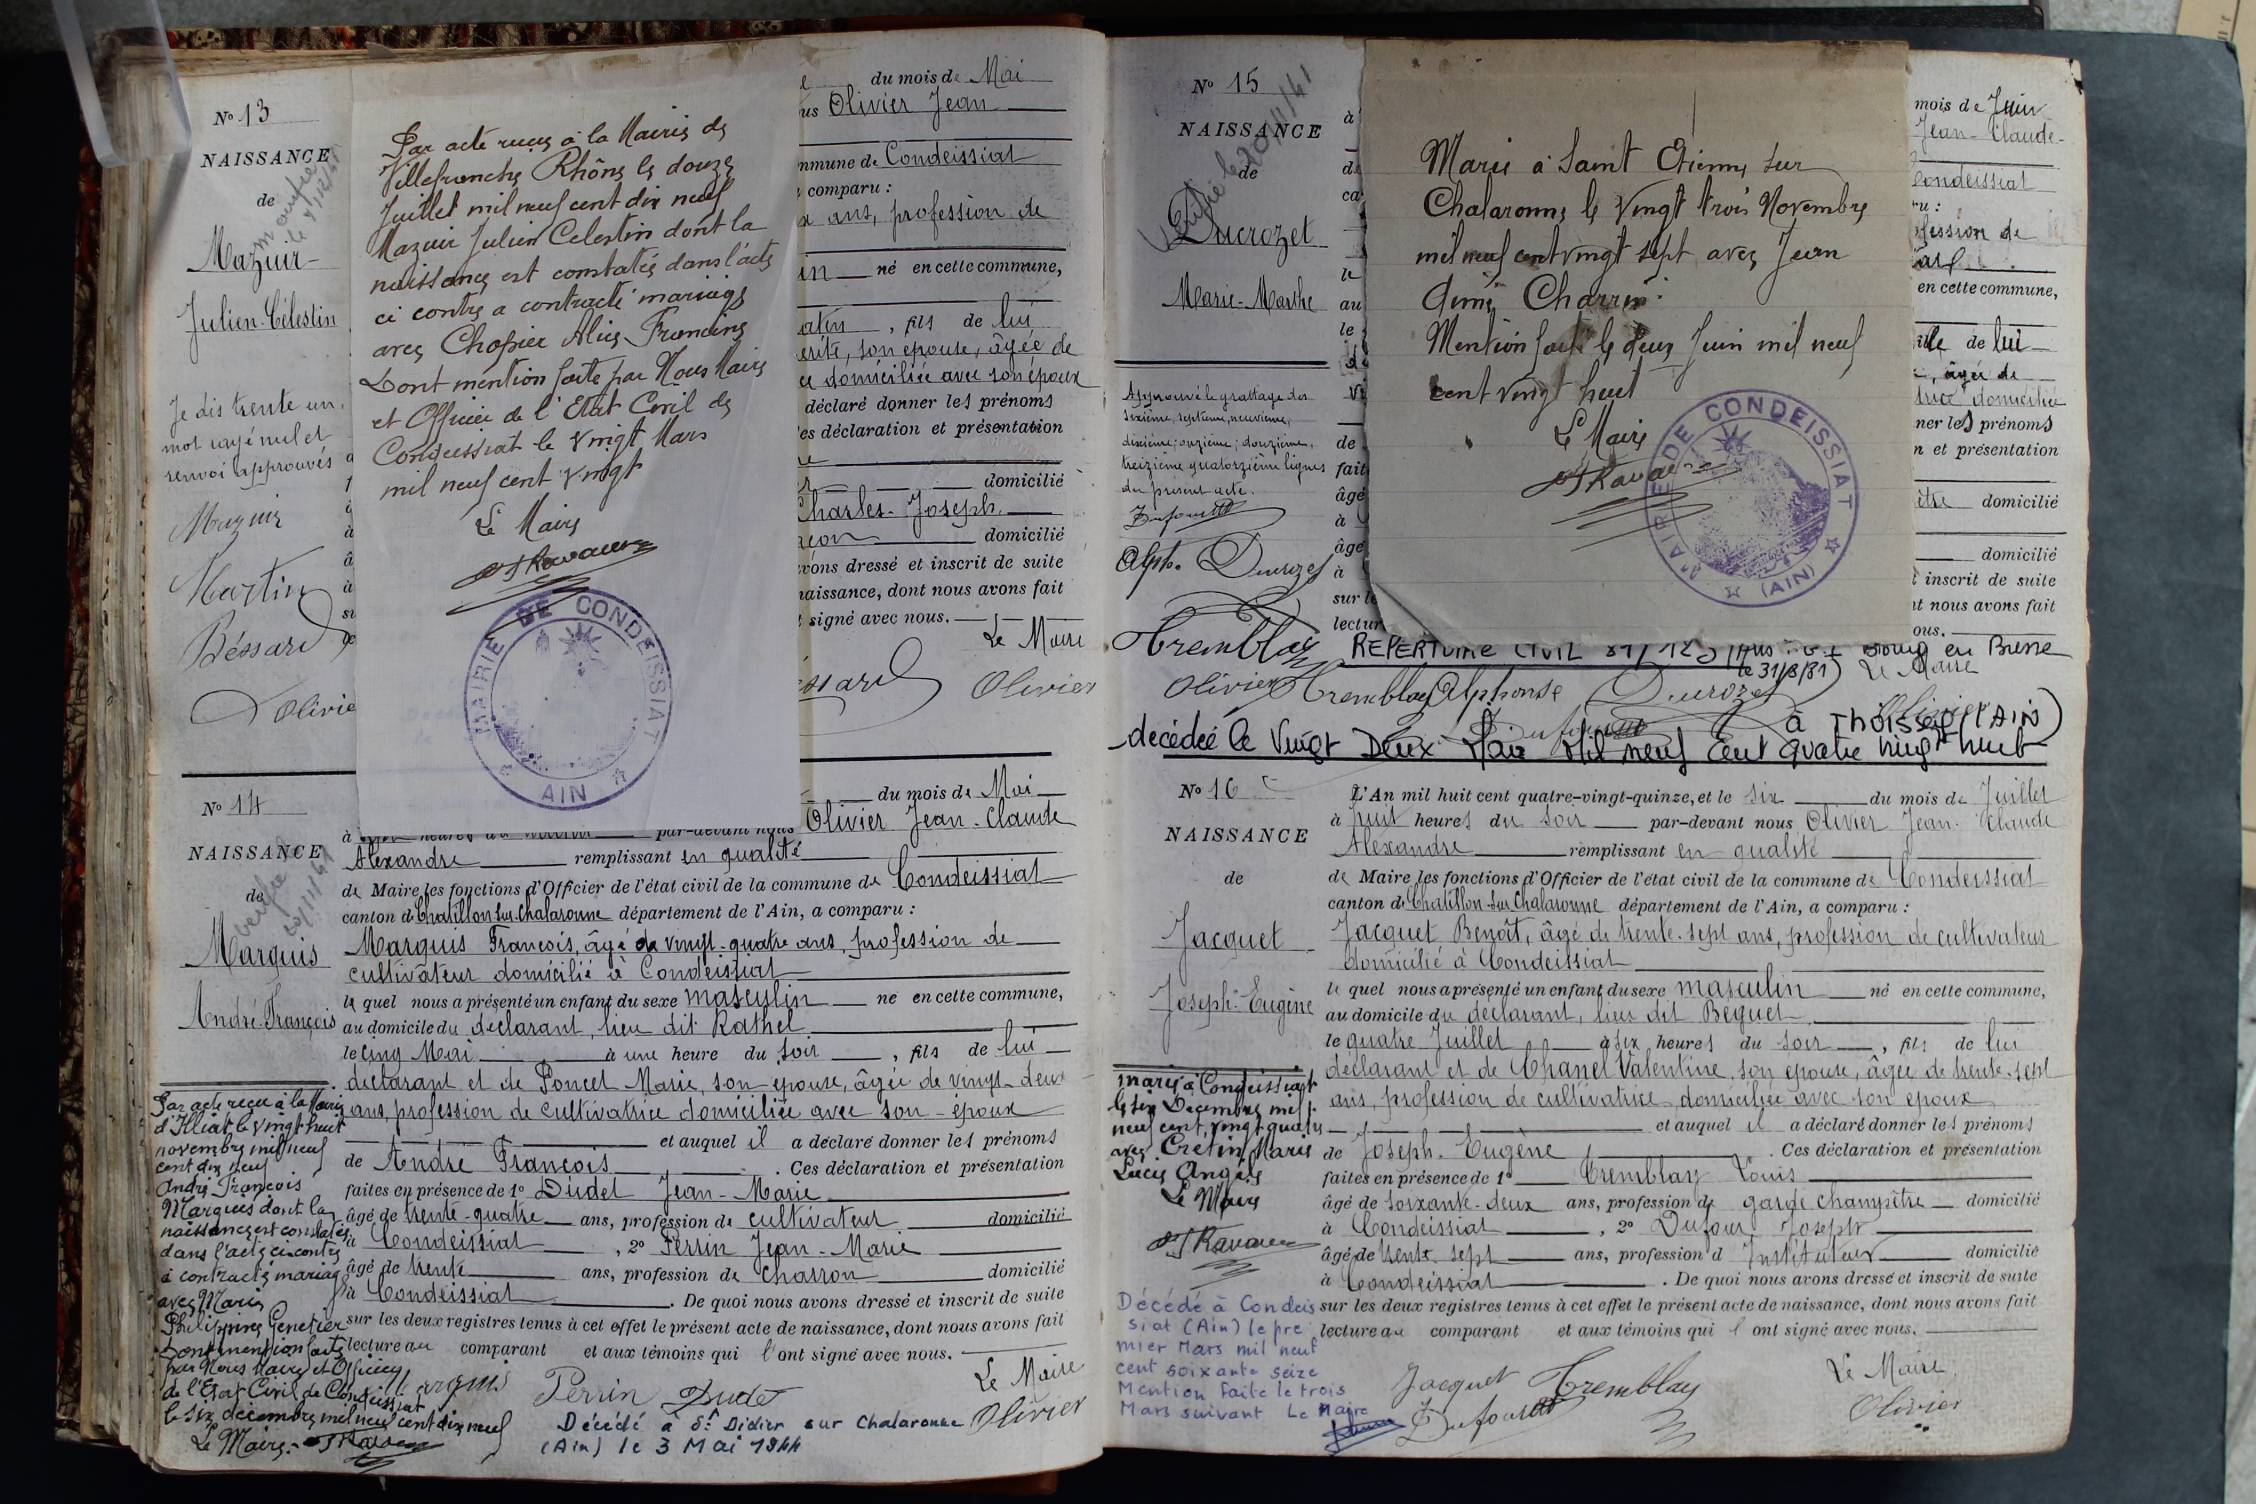 No 13
NAISSANCE
de
Mazuir
Julien-Célestin
Je dis trente un
mot rayé nul et
renvoi approuvés
Mazuir
Martin
Béssard
Olivie
Par acte reçu à la Mairie de
Villefranche Rhône le douze
Juillet mil neuf cent dix neuf
Mazuir Julien Celestin dont la
naissance est constatée dans l'acte
ci contre a contracté mariage
avec Chopier Alice Francine
Dont mention faite par Nous Maire
et Officier de l'Etat Civil de
Condeissiat le vingt Mars
mil neuf cent vingt
Le Maire
MAIRIE DE CONDEISSIAT
AIN
du mois de Mai
us Olivier Jean
mmune de Condeissiat
comparu :
ans, profession de
in né en cette commune,
, fils de lui
son épouse, âgée de
domiciliée avec son époux
déclaré donner les prénoms
es déclaration et présentation
domicilié
Charles-Joseph
domicilié
vons dressé et inscrit de suite
naissance, dont nous avons fait
signé avec nous.
Le Maire
Olivier
No 14
NAISSANCE
de
Marquis
André-François
du mois de Mai
par-devant nous Olivier Jean-Claude
Alexandre remplissant en qualité
de Maire les fonctions d'Officier de l'état civil de la commune de Condeissiat
canton de Chatillon-sur-Chalaronne département de l'Ain, a comparu :
Marquis François, âgé de vingt-quatre ans, profession de
cultivateur domicilié à Condeissiat
lequel nous a présenté un enfant du sexe masculin né en cette commune,
au domicile du déclarant, lieu dit Rathel
le cinq Mai à une heure du soir, fils de lui
déclarant et de Poncet Marie, son épouse, âgée de vingt-deux
ans, profession de cultivatrice domiciliée avec son époux
et auquel il a déclaré donner les prénoms
de André François. Ces déclaration et présentation
faites en présence de 1º Dudet Jean-Marie
âgé de trente-quatre ans, profession de cultivateur domicilié
à Condeissiat, 2º Perrin Jean-Marie
âgé de trente ans, profession de charron domicilié
à Condeissiat. De quoi nous avons dressé et inscrit de suite
sur les deux registres tenus à cet effet le présent acte de naissance, dont nous avons fait
lecture au comparant et aux témoins qui l'ont signé avec nous.
Le Maire
Perrin Dudet
Olivier
Décédé à St Didier sur Chalaronne
(Ain) le 3 Mai 1944
Par acte reçu à la Mairie
d'Illiat le vingt huit
novembre mil neuf
cent dix neuf
André François
Marquis dont la
naissance est constatée
dans l'acte ci-contre
a contracté mariage
avec Marie
Philippine Genetier
Dont mention faite
par Nous Maire et Officier
de l'Etat Civil de Condeissiat
le six décembre mil neuf cent dix neuf
Le Maire
No 15
NAISSANCE
de
Ducrozet
Marie-Marthe
Approuvé le grattage des
sixième, septième, neuvième,
dixième, onzième, douzième,
treizième quatorzième lignes
du présent acte.
Dufour
Alph. Ducrozet
Tremblay
Marié à Saint Etienne sur
Chalaronne le vingt trois Novembre
mil neuf cent vingt sept avec Jean
Aimé Charrin
Mention faite le deux Juin mil neuf
cent vingt huit
Le Maire
MAIRIE DE CONDEISSIAT
(AIN)
mois de Juin
Jean-Claude
Condeissiat
ru :
fession de
en cette commune,
ille de lui
, âgée de
domiciliée
ner les prénoms
n et présentation
domicilié
domicilié
t inscrit de suite
nt nous avons fait
ous.
REPERTOIRE CIVIL 81/123 Bourg en Bresse
le 31/8/81)
Le Maire
Olivier Tremblay Alphonse Ducrozet
Dufour Olivier
à Thoissey (AIN)
décédée le Vingt Deux Mai Mil neuf Cent quatre vingt huit
No 16
NAISSANCE
de
Jacquet
Joseph-Eugène
L'An mil huit cent quatre-vingt-quinze, et le six du mois de Juillet
à huit heures du soir par-devant nous Olivier Jean-Claude
Alexandre remplissant en qualité
de Maire les fonctions d'Officier de l'état civil de la commune de Condeissiat
canton de Chatillon-sur-Chalaronne département de l'Ain, a comparu :
Jacquet Benoît, âgé de trente-sept ans, profession de cultivateur
domicilié à Condeissiat
lequel nous a présenté un enfant du sexe masculin né en cette commune,
au domicile du déclarant, lieu dit Bequet
le quatre Juillet à six heures du soir, fils de lui
déclarant et de Chanel Valentine son épouse, âgée de trente-sept
ans, profession de cultivatrice, domiciliée avec son époux
et auquel il a déclaré donner les prénoms
de Joseph-Eugène. Ces déclaration et présentation
faites en présence de 1º Tremblay Louis
âgé de soixante-deux ans, profession de garde champêtre domicilié
à Condeissiat, 2º Dufour Joseph
âgé de trente sept ans, profession d'Instituteur domicilié
à Condeissiat. De quoi nous avons dressé et inscrit de suite
sur les deux registres tenus à cet effet le présent acte de naissance, dont nous avons fait
lecture au comparant et aux témoins qui l'ont signé avec nous.
Jacquet Tremblay
Le Maire
Dufour
Olivier
marié à Condeissiat
le six Décembre mil
neuf cent vingt quatre
avec Cretin Marie
Lucie Angèle
Le Maire
Décédé à Condeis
siat (Ain) le pre
mier Mars mil neuf
cent soixante seize
Mention faite le trois
Mars suivant Le Maire